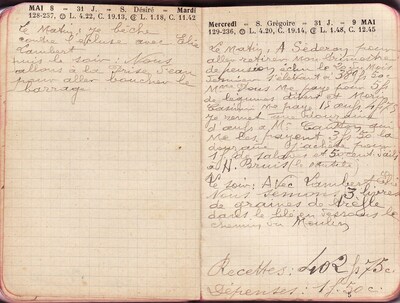 MAI 8 - 31 J. - S. Désiré Mardi
128-237 L. 4.22, C. 19.13, L. 1.18, C. 11.42
Le Matin, je bêche
contre l'écluse avec Elie
Lambert
puis le soir: Nous
allons à la prise d'eau
pour aller boucher le
barrage
Mercredi - S. Grégoire - 31 J. - 9 MAI
129-236, L. 4.20, C. 19.14, L. 1.48, C. 12.45
Le Matin, A Séderon pour
aller retirer mon trimestre
de pension
s'élevant à 381f 50c
Mme me paye pour 5f
de légumes
me paye 12 œufs 4f75
Je remet une douzaine
d'œufs à M. Gauthier qui
me les payent 3f50 la
douzaine J'achète pour
1f de salades et 50 cent
à H. Bruis
Le soir, Avec Lambert Elie
Nous semons 3 livres
de graines de trèfle
dans le blé en dessous le
chemin du Moulin
Recettes: 402f75c.
Dépenses: 1f50c.